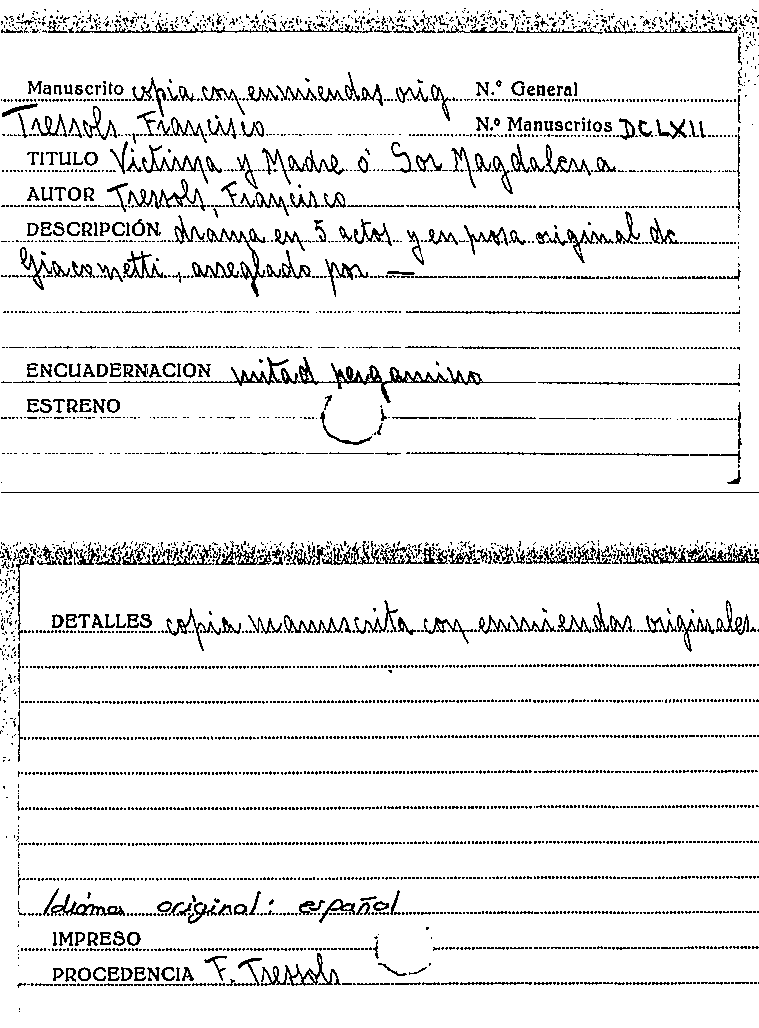 Manuscrito copia con enmiendas orig N.º General
Tressols, Francisco N.º Manuscritos DCLXII
TITULO Víctima y Madre ó Sor Magdalena
AUTOR Tressols, Francisco
DESCRIPCIÓN drama en 5 actos y en prosa original de
Giacometti, arreglado por —
ENCUADERNACION mitad pergamino
ESTRENO
DETALLES copia manuscrita con enmiendas originales
Idioma original: español
IMPRESO
PROCEDENCIA F. Tressols